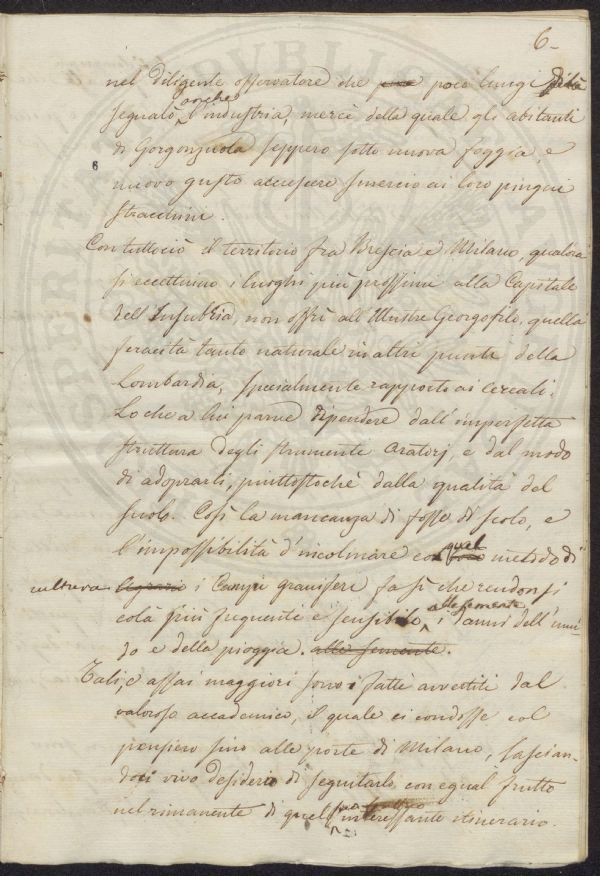 6.
nel diligente osservatore che poco lungi di là
segnalò anche industria mercè della quale gli abitanti
di Gorgonzuola seppero sotto nuova foggia, e
6
nuovo gusto accrescere smercio ai loro pingui
stracchini.
Contuttociò il territorio fra Brescia e Milano, qualora
si eccettuino i luoghi più prossimi alla Capitale
dell'Insubria non offrì all'Illustre Georgofilo, quella
feracità tanto naturale in altri punti della
Lombardia, specialmente rapporto ai cereali.
Loche a lui parve dipendere dall'imperfetta
struttura degli strumenti aratorj, e dal modo
di adoprarli, piuttostochè dalla qualità del
suolo. Così la mancanza di fosse di scolo, e
l'impossibilità d'incolmare con quel metodo di
cultura i Campi graniferi fa sì che rendonsi
colà più frequenti e sensibili alle semente i danni dell'umi-
do e della pioggia. alle semente.
Tali, e assai maggiori sono i fatti avvertiti dal
valoroso accademico, il quale ci condusse col
pensiero sino alle porte di Milano, lascian-
doci vivo desiderio di seguitarlo con egual frutto
nel rimanente di quell' interessante itinerario.